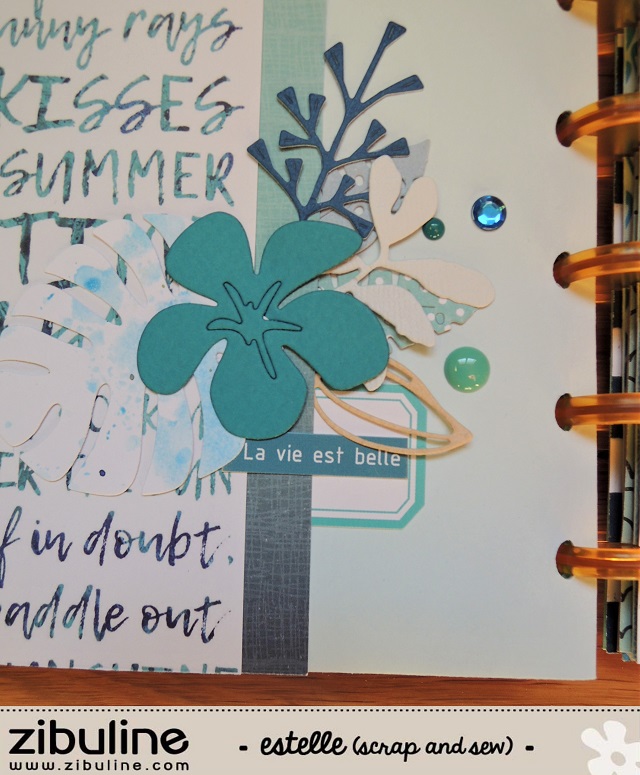 rays
KISSES
SUMMER
La vie est belle
if in doubt,
paddle out
zibuline
www.zibuline.com
- estelle (scrap and sew) -